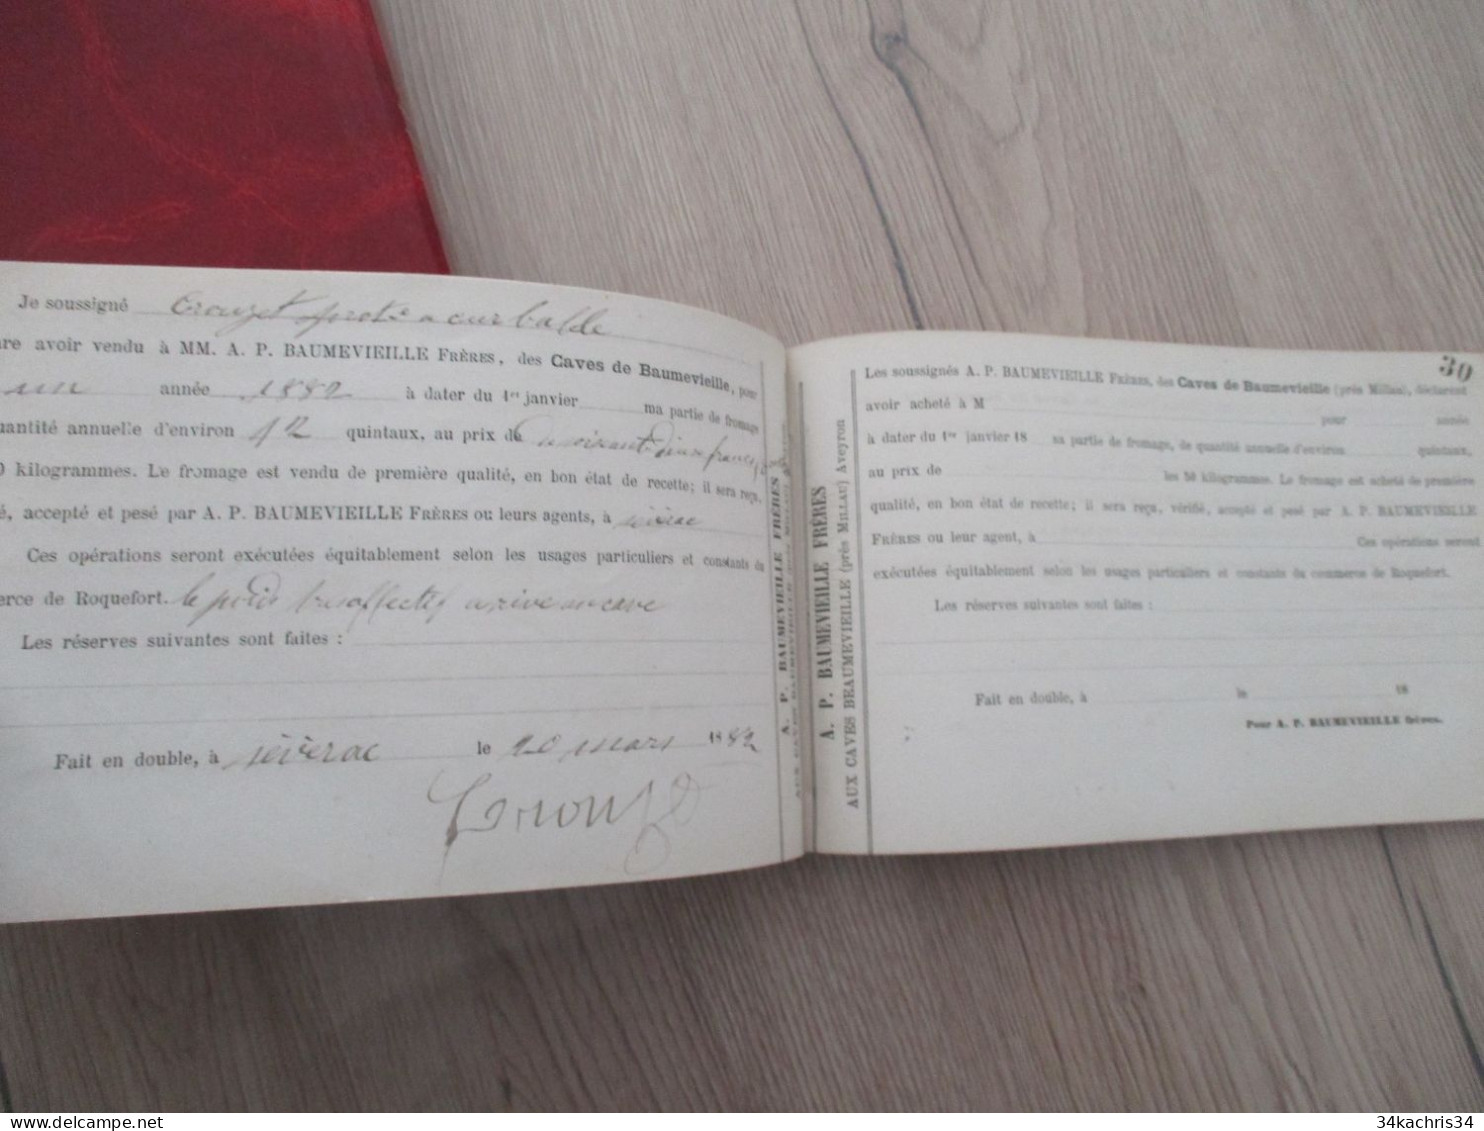 Je soussigné Crouzet prote a curbalde
are avoir vendu à MM. A. P. BAUMEVIEILLE FRÈRES, des Caves de Baumevieille, pour
un année 1882 à dater du 1er janvier ma partie de fromage
uantité annuelle d'environ 12 quintaux, au prix de soixante deux francs
0 kilogrammes. Le fromage est vendu de première qualité, en bon état de recette; il sera reçu,
é, accepté et pesé par A. P. BAUMEVIEILLE FRÈRES ou leurs agents, à séverac
Ces opérations seront exécutées équitablement selon les usages particuliers et constants du
erce de Roquefort. le poids arrive en cave
Les réserves suivantes sont faites :
Fait en double, à séverac le 20 mars 1882
Crouzet
A. P. BAUMEVIEILLE FRÈRES
A. P. BAUMEVIEILLE FRÈRES
AUX CAVES BEAUMEVIEILLE (près MILLAU) Aveyron
30
Les soussignés A. P. BAUMEVIEILLE FRÈRES, des Caves de Baumevieille (près Millau), déclarent
avoir acheté à M pour année
à dater du 1er janvier 18 sa partie de fromage, de quantité annuelle d'environ quintaux,
au prix de les 50 kilogrammes. Le fromage est acheté de première
qualité, en bon état de recette; il sera reçu, vérifié, accepté et pesé par A. P. BAUMEVIEILLE
FRÈRES ou leur agent, à Ces opérations seront
exécutées équitablement selon les usages particuliers et constants du commerce de Roquefort.
Les réserves suivantes sont faites :
Fait en double, à le 18
Pour A. P. BAUMEVIEILLE frères.
© delcampe.net
34kachris34